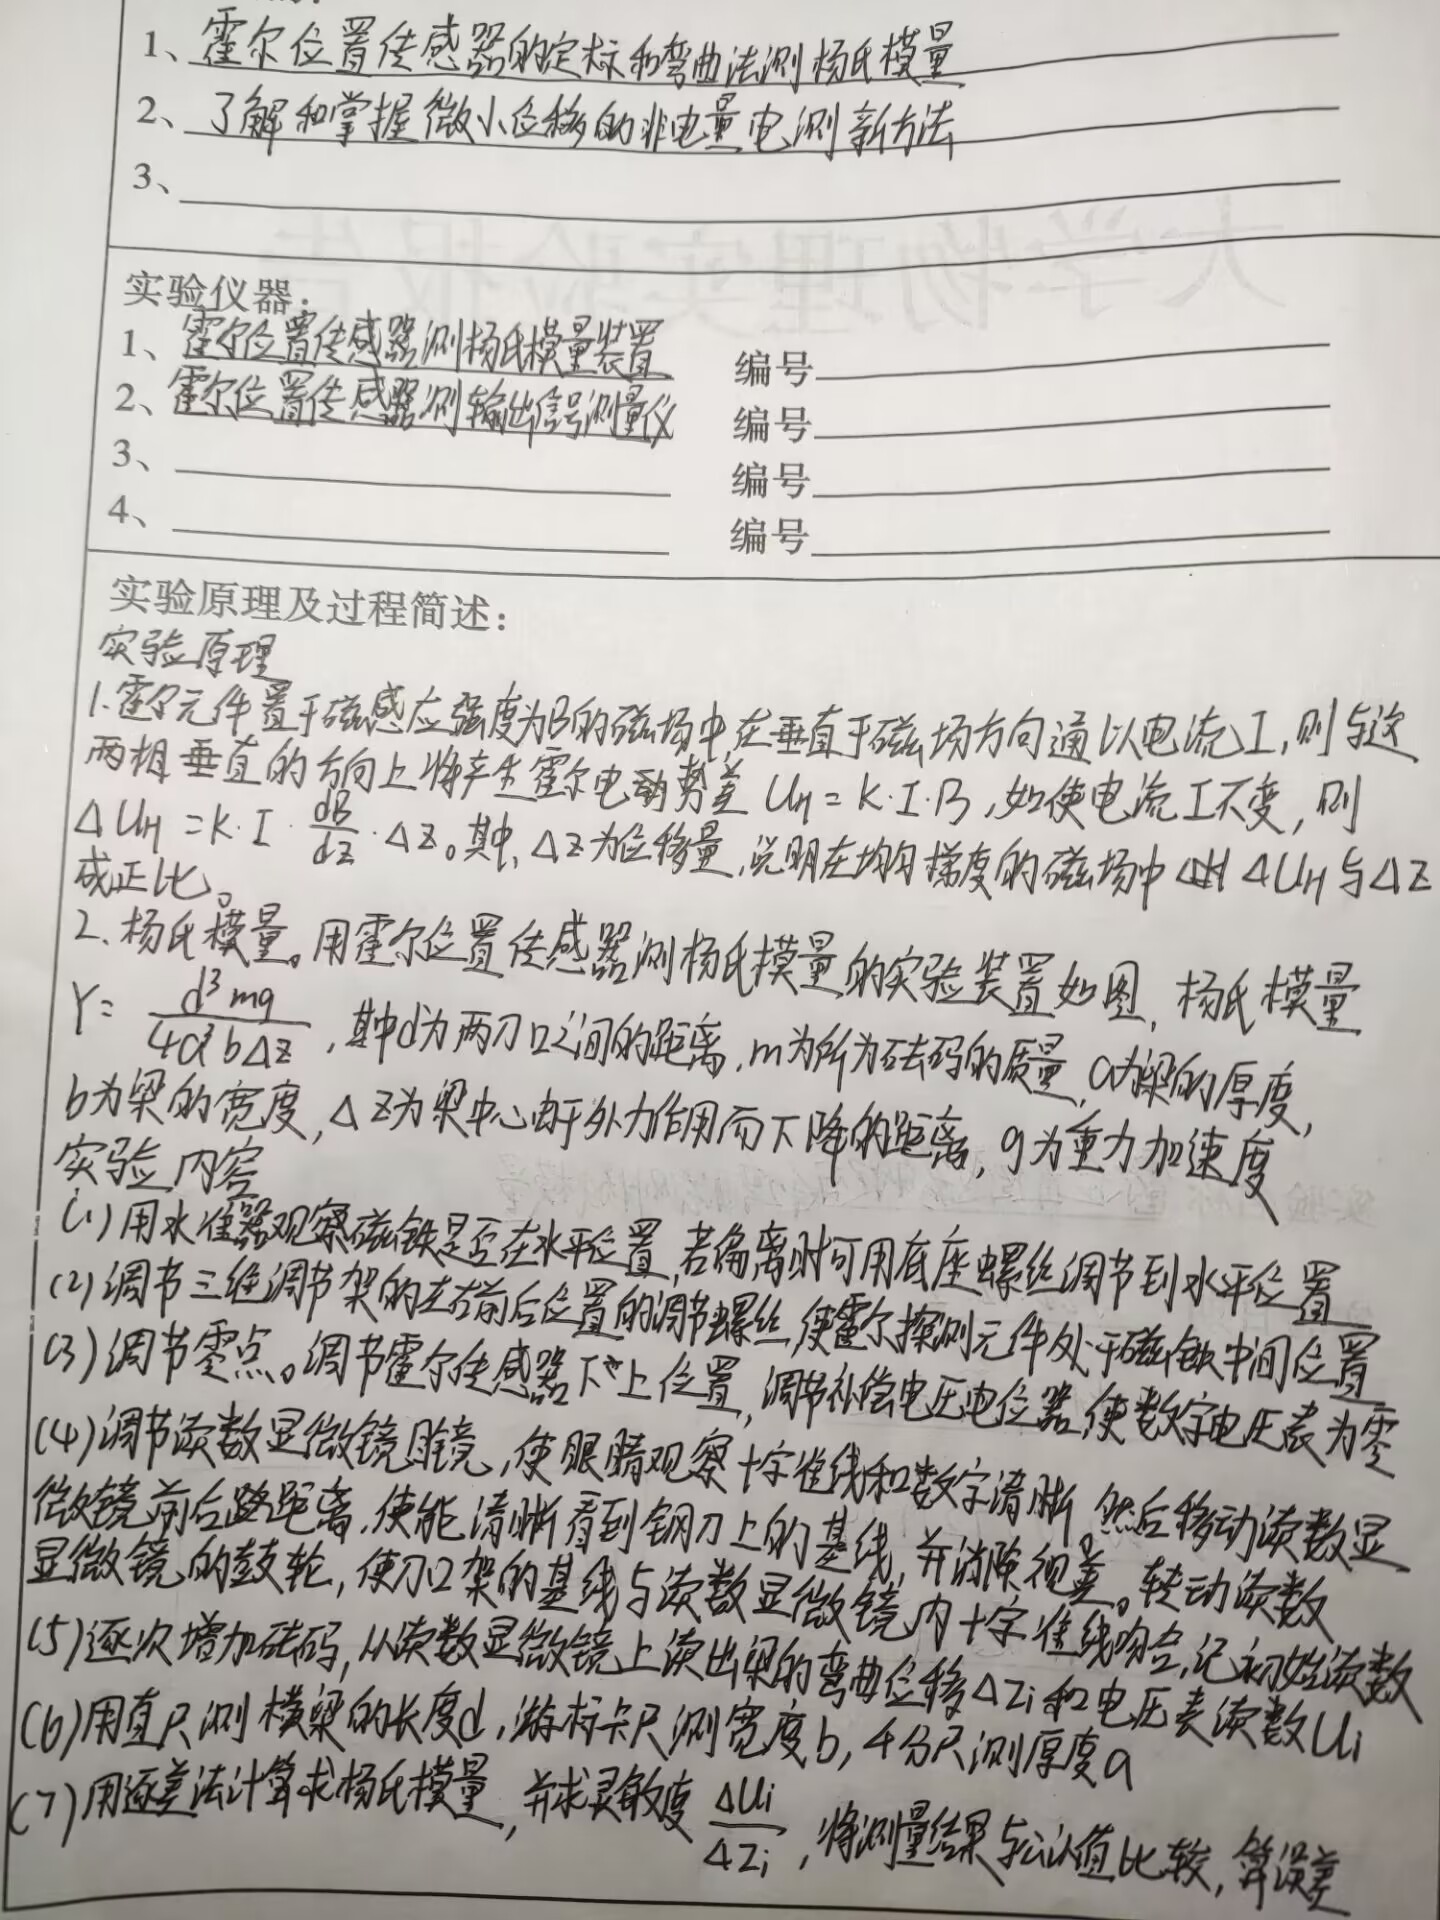 1、霍尔位置传感器的定标和弯曲法测杨氏模量
2、了解和掌握微小位移的非电量电测新方法
3、
实验仪器：
1、霍尔位置传感器测杨氏模量装置 编号
2、霍尔位置传感器测输出信号测量仪 编号
3、 编号
4、 编号
实验原理及过程简述：
实验原理
1.霍尔元件置于磁感应强度为B的磁场中,在垂直于磁场方向通以电流I,则与这
两相垂直的方向上将产生霍尔电动势差 UH = K·I·B,如使电流I不变,则
ΔUH = K·I·dB/dz·ΔZ。其中,ΔZ为位移量,说明在均匀梯度的磁场中 ΔUH与ΔZ
成正比。
2.杨氏模量。用霍尔位置传感器测杨氏模量的实验装置如图,杨氏模量
Y= d³mg/4a³bΔz ,其中d为两刀口之间的距离,m为所为砝码的质量,a为梁的厚度,
b为梁的宽度,ΔZ为梁中心由于外力作用而下降的距离,g为重力加速度
实验内容
(1)用水准器观察磁铁是否在水平位置,若偏离时可用底座螺丝调节到水平位置
(2)调节三维调节架的左右前后位置的调节螺丝,使霍尔探测元件处于磁铁中间位置
(3)调节零点。调节霍尔传感器下上位置,调节补偿电压电位器,使数字电压表为零
(4)调节读数显微镜目镜,使眼睛观察十字准线和数字清晰。然后移动读数显
微镜前后距离,使能清晰看到钢刀上的基线,并消除视差。转动读数
显微镜的鼓轮,使刀口架的基线与读数显微镜内十字准线吻合,记初始读数
(5)逐次增加砝码,从读数显微镜上读出梁的弯曲位移ΔZi和电压表读数Ui
(6)用直尺测横梁的长度d,游标卡尺测宽度b,千分尺测厚度a
(7)用逐差法计算求杨氏模量,并求灵敏度 ΔUi/ΔZi ,将测量结果与公认值比较,算误差